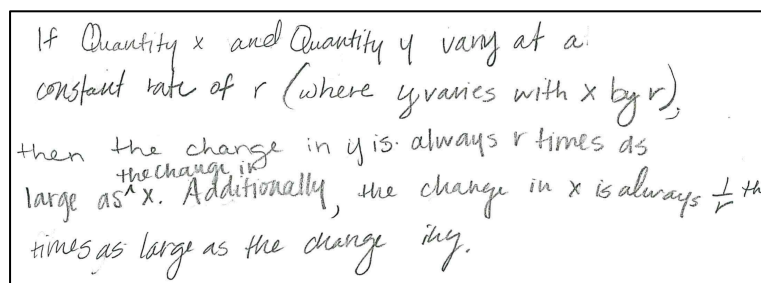 If Quantity x and Quantity y vary at a
constant rate of r (where y varies with x by r),
then the change in y is always r times as
large as ^ the change in x. Additionally, the change in x is always 1/r th
times as large as the change in y.